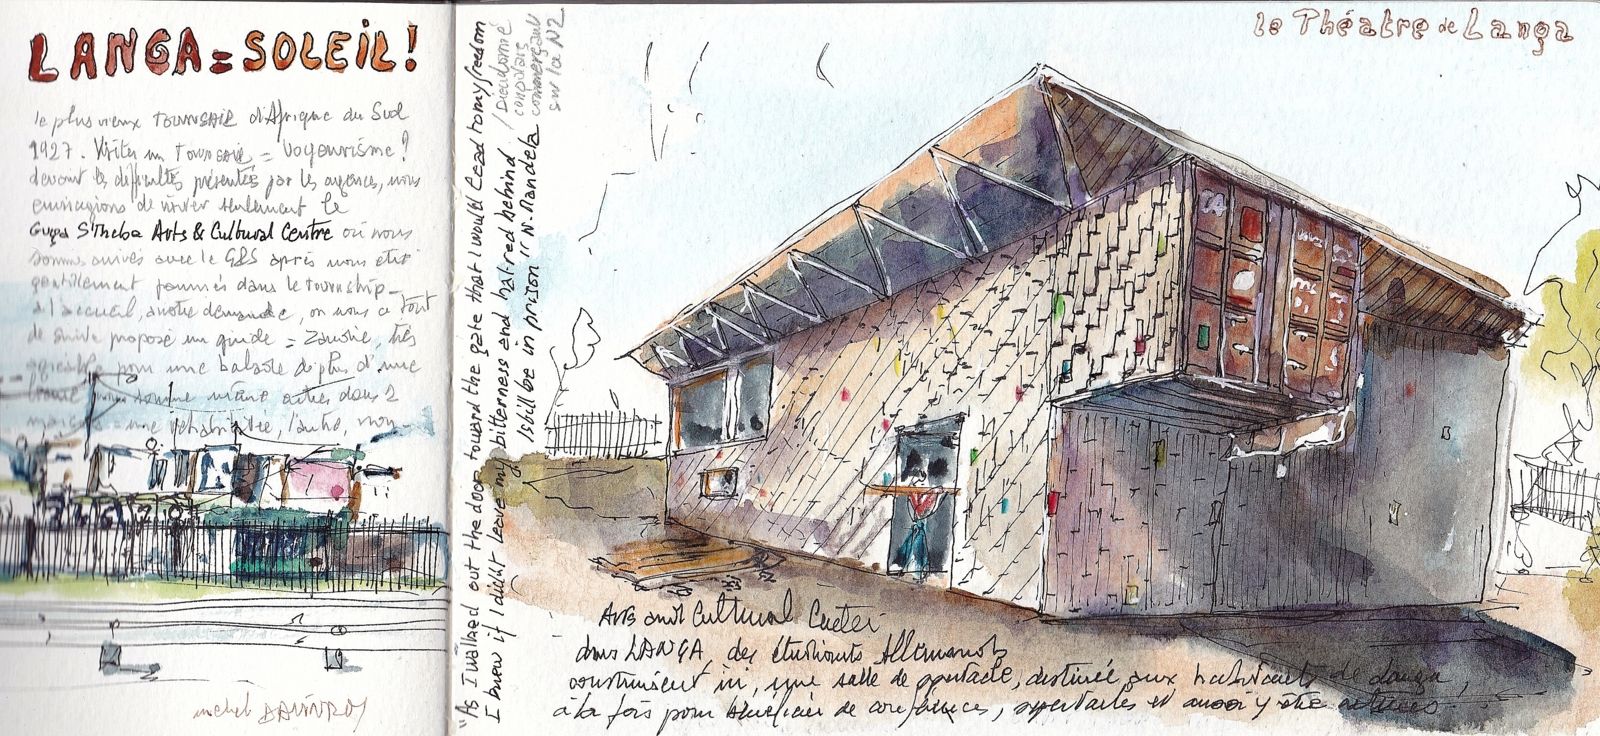 LANGA = SOLEIL!
le plus vieux TOWNSHIP d'Afrique du Sud
1927. Visiter un TOWNSHIP = Voyeurisme?
devant les difficultés présentées par les agences, nous
envisagions de visiter seulement le
Guga S'Theba Arts & Cultural Centre où nous
sommes arrivés avec le GPS après nous être
gentillement paumés dans le township_
à l'accueil, à notre demande, on nous a tout
de suite proposé un guide = très
agréable pour une balade de plus d'une
heure nous sommes même entrés dans 2
maisons = une réhabilitée, l'autre, non_
michel
"As I walked out the door toward the gate that I would lead to my freedom
I knew if I didn't leave my bitterness and hatred behind
I still be in prison" N. Mandela
sur la N2
le Théâtre de Langa
CA
Arts and Cultural Center
dans LANGA, des étudiants Allemands
construisent ici, une salle de spectacle, destinée aux habitants de Langa,
à la fois pour bénéficier de conférences, spectacles et aussi y être acteurs.